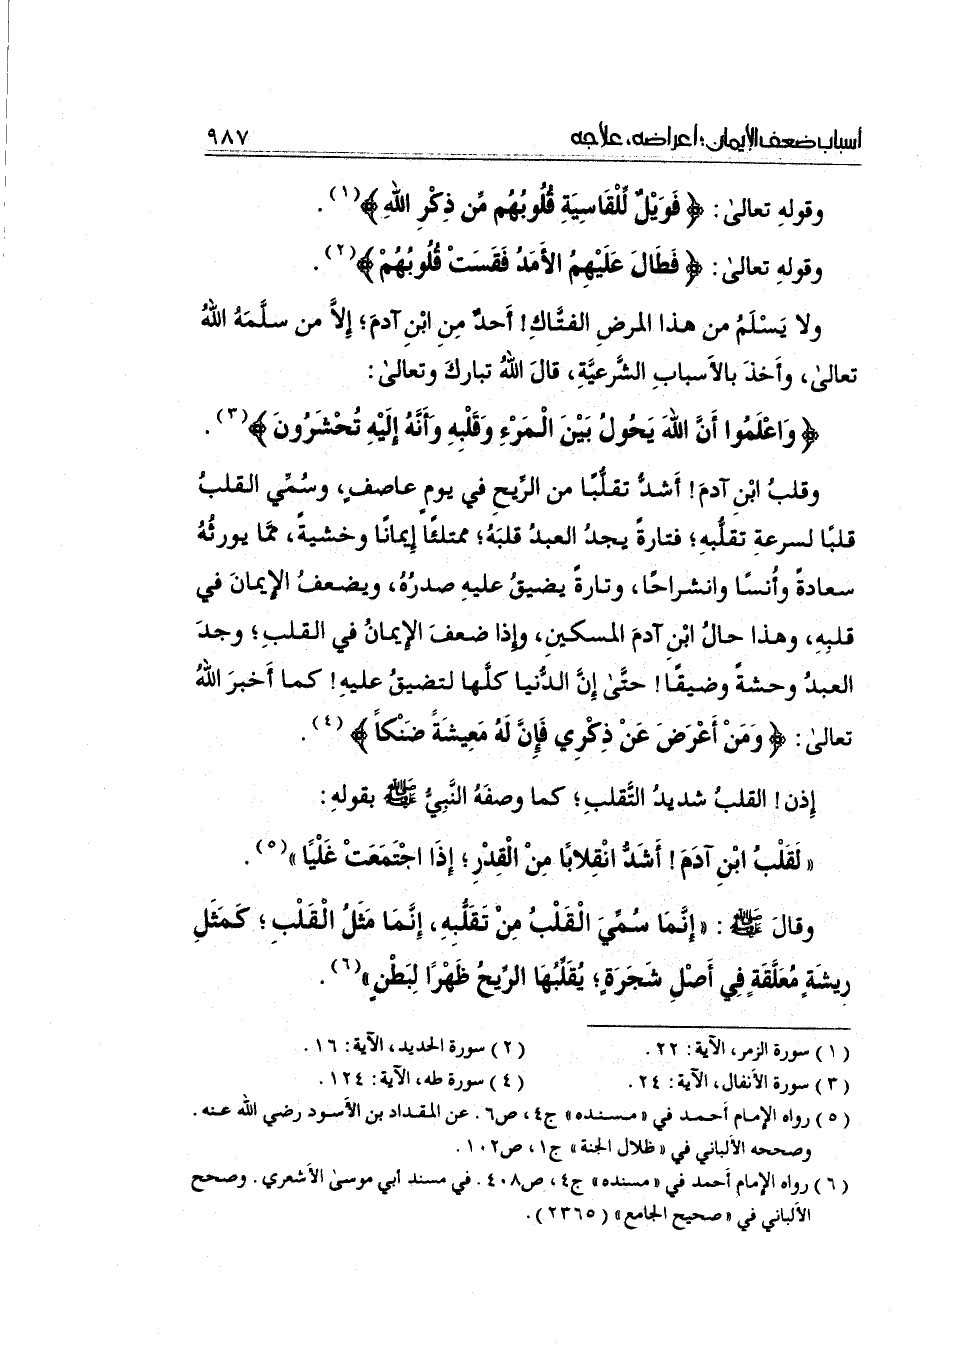 أسباب ضعف الإيمان؛ أعراضه، علاجه ٩٨٧
وقولهِ تعالىٰ: ﴿ فَوَيْلٌ لِّلْقَاسِيَةِ قُلُوبُهُم مِّن ذِكْرِ اللهِ ﴾(١).
وقولهِ تعالىٰ: ﴿ فَطَالَ عَلَيْهِمُ الأَمَدُ فَقَسَتْ قُلُوبُهُمْ ﴾(٢).
ولا يَسْلَمُ من هذا المرضِ الفتَّاكِ! أحدٌ مِن ابْنِ آدمَ؛ إلاَّ من سلَّمَهُ اللهُ
تعالىٰ، وأخذَ بالأسبابِ الشَّرعيَّةِ، قالَ اللهُ تباركَ وتعالىٰ:
﴿ وَاعْلَمُوا أَنَّ اللهَ يَحُولُ بَيْنَ الْمَرْءِ وَقَلْبِهِ وَأَنَّهُ إِلَيْهِ تُحْشَرُونَ ﴾(٣).
وقلبُ ابْنِ آدمَ! أشدُّ تقلُّبًا من الرِّيحِ في يومٍ عاصفٍ، وسُمِّي القلبُ
قلبًا لسرعةِ تقلُّبهِ؛ فتارةً يجدُ العبدُ قلبَهُ؛ ممتلئًا إيمانًا وخشيةً، ممَّا يورثُهُ
سعادةً وأُنسًا وانشراحًا، وتارةً يضيقُ عليهِ صدرُهُ، ويضعفُ الإيمانَ في
قلبِهِ، وهذا حالُ ابْنِ آدمَ المسكينِ، وإذا ضعفَ الإيمانُ في القلبِ؛ وجدَ
العبدُ وحشةً وضيقًا! حتَّىٰ إنَّ الدُّنيا كلَّها لتضيقُ عليهِ! كما أخبرَ اللهُ
تعالىٰ: ﴿ وَمَنْ أَعْرَضَ عَنْ ذِكْرِي فَإِنَّ لَهُ مَعِيشَةً ضَنْكاً ﴾(٤).
إذن! القلبُ شديدُ التَّقلبِ؛ كما وصفَهُ النَّبيُّ ﷺ بقولهِ:
« لَقَلْبُ ابْنِ آدَمَ! أَشَدُّ انْقِلابًا مِنْ الْقِدْرِ؛ إِذَا اجْتَمَعَتْ غَلْيًا »(٥).
وقالَ ﷺ: « إِنَّمَا سُمِّيَ الْقَلْبُ مِنْ تَقَلُّبِهِ، إِنَّمَا مَثَلُ الْقَلْبِ؛ كَمَثَلِ
رِيشَةٍ مُعَلَّقَةٍ فِي أَصْلِ شَجَرَةٍ؛ يُقَلِّبُهَا الرِّيحُ ظَهْرًا لِبَطْنٍ »(٦).
(١) سورة الزمر، الآية: ٢٢. (٢) سورة الحديد، الآية: ١٦.
(٣) سورة الأنفال، الآية: ٢٤. (٤) سورة طه، الآية: ١٢٤.
(٥) رواه الإمام أحمد في «مسنده» ج٤، ص٦. عن المقداد بن الأسود رضي الله عنه.
وصححه الألباني في «ظلال الجنة» ج١، ص١٠٢.
(٦) رواه الإمام أحمد في «مسنده» ج٤، ص٤٠٨. في مسند أبي موسىٰ الأشعري. وصحح
الألباني في «صحيح الجامع» (٢٣٦٥).